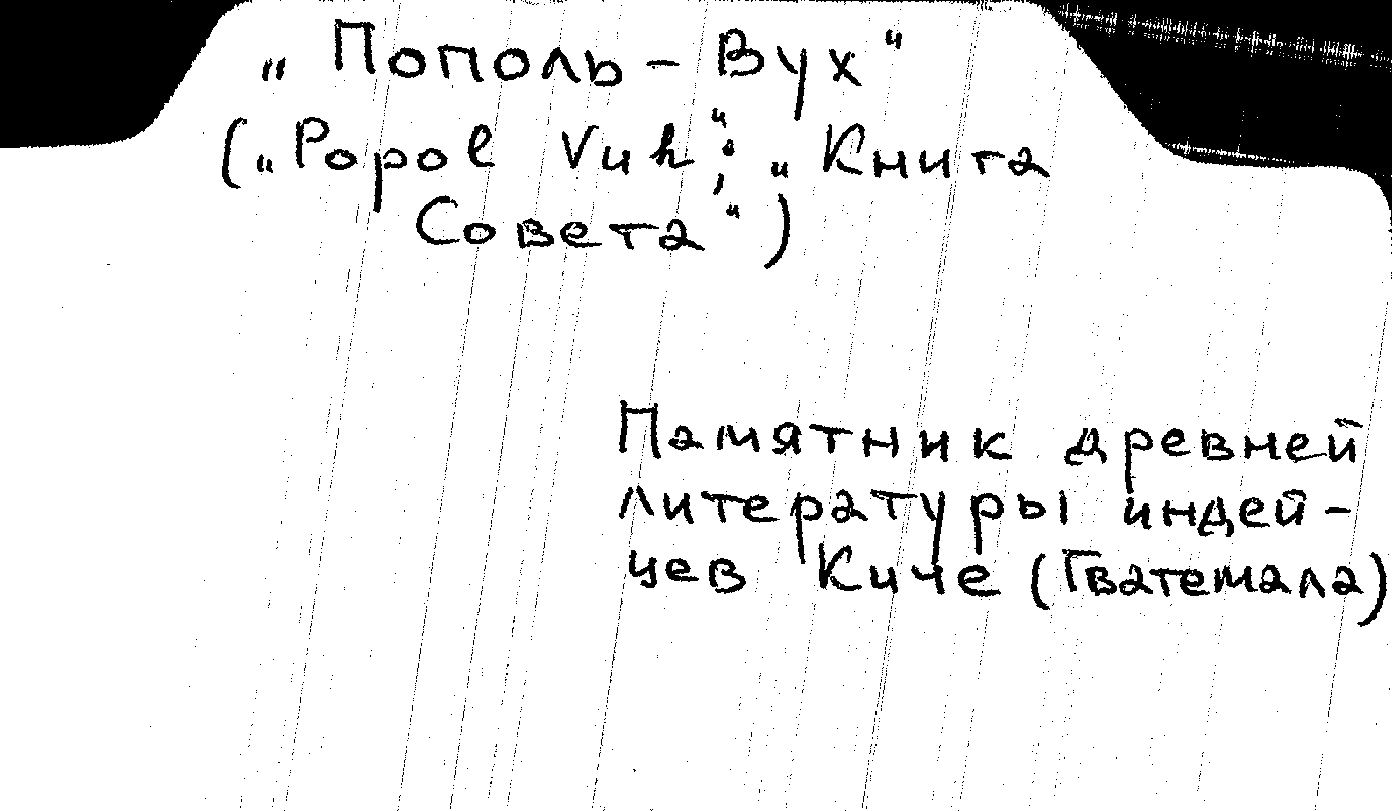 „Пополь-Вух“
(„Popol Vuh“; „Книга
Совета“)
Памятник древней
литературы индей-
цев Киче (Гватемала)